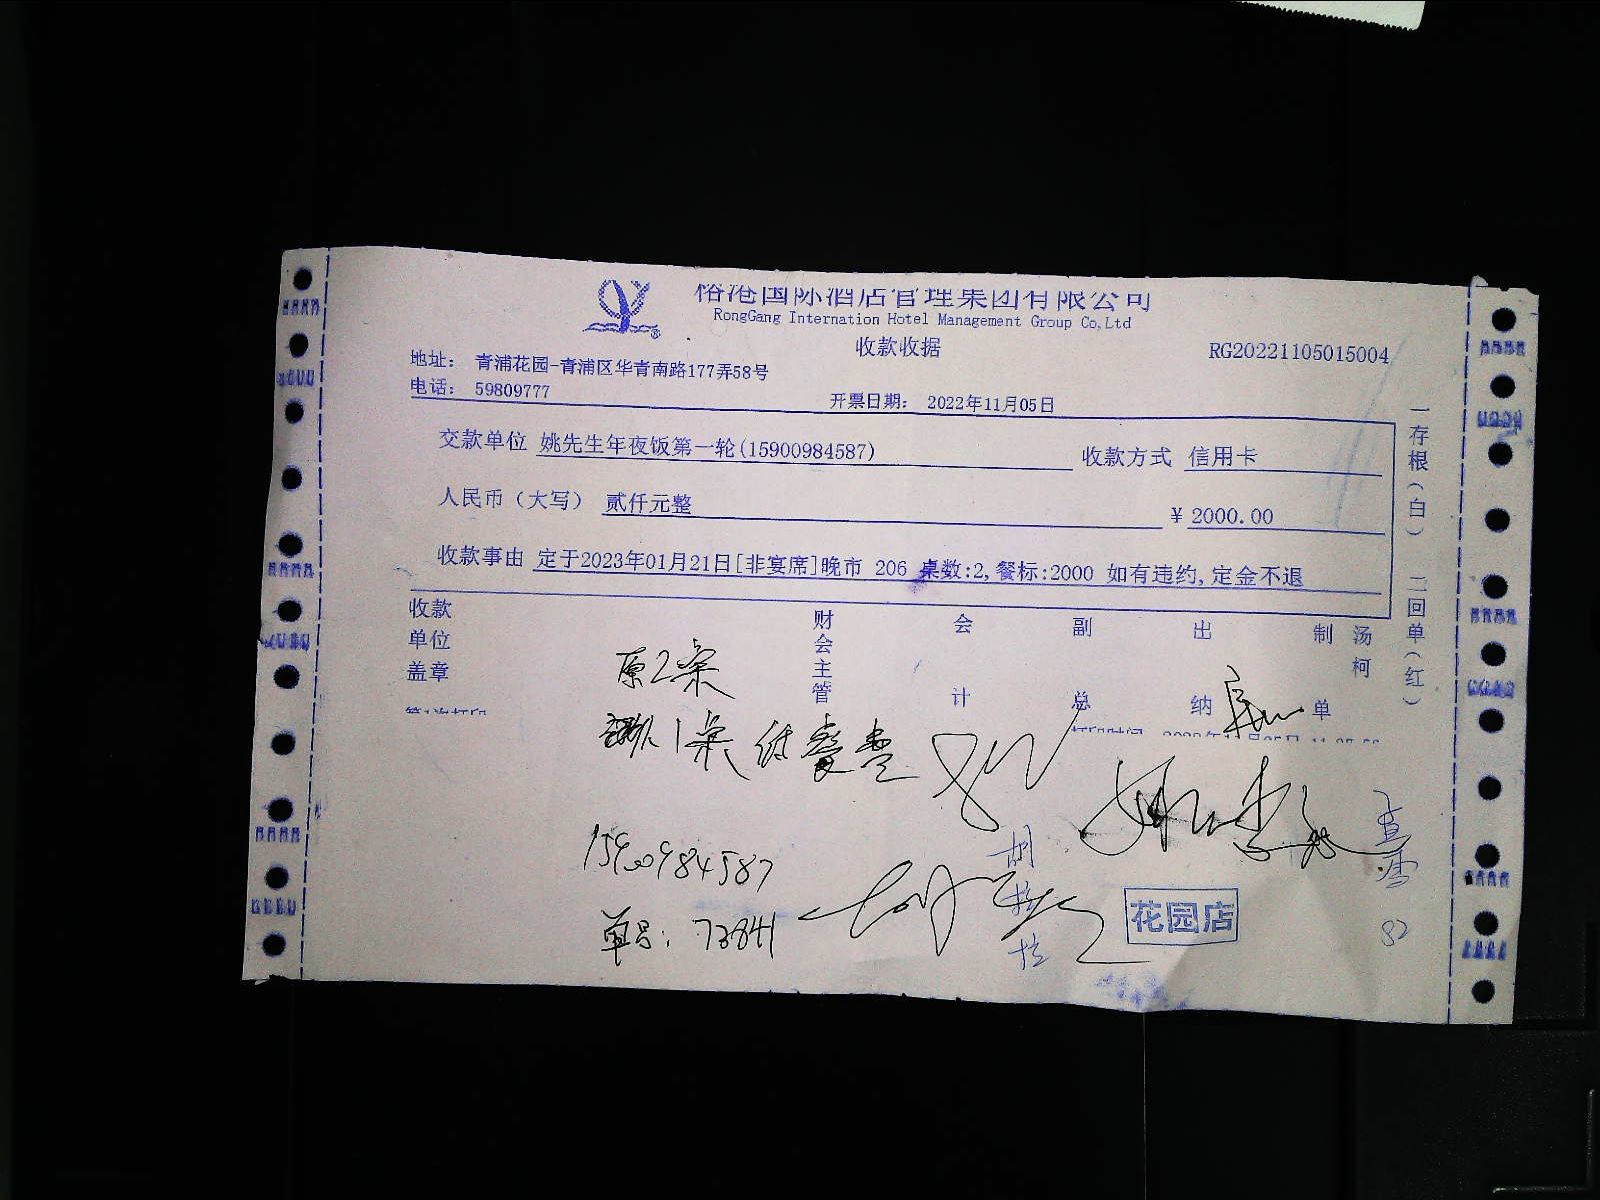 榕港国际酒店管理集团有限公司
RongGang Internation Hotel Management Group Co,Ltd
收款收据
RG20221105015004
地址： 青浦花园-青浦区华青南路177弄58号
电话： 59809777
开票日期： 2022年11月05日
交款单位 姚先生年夜饭第一轮(15900984587) 收款方式 信用卡
人民币（大写） 贰仟元整 ¥ 2000.00
收款事由 定于2023年01月21日[非宴席]晚市 206 桌数:2,餐标:2000 如有违约,定金不退
收款单位盖章 财会主管 会计 副总 出纳 制单 汤柯
一存根(白) 二回单(红)
原2桌
1桌 餐费
15900984587
单号: 73841
花园店
82